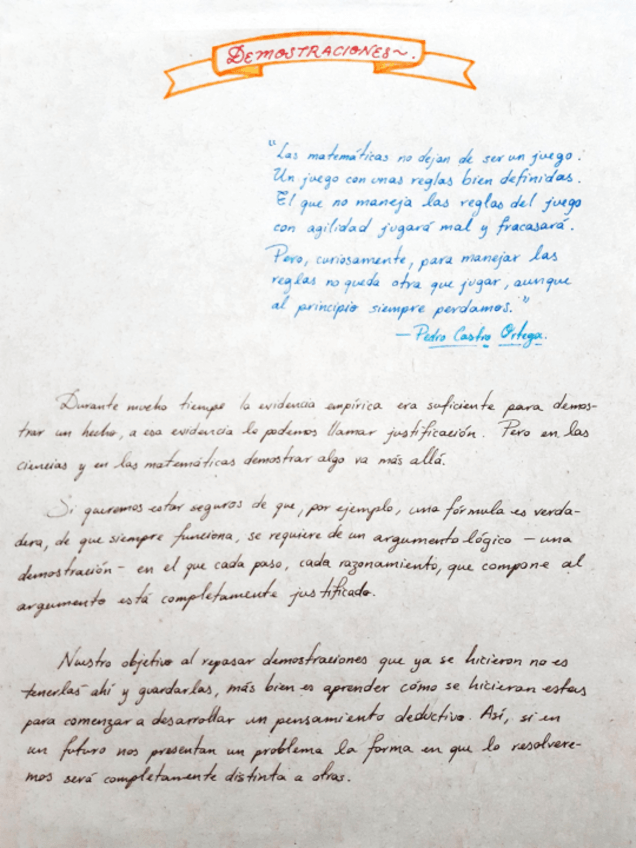 DEMOSTRACIONES~.
"Las matemáticas no dejan de ser un juego.
Un juego con unas reglas bien definidas.
El que no maneja las reglas del juego
con agilidad jugará mal y fracasará.
Pero, curiosamente, para manejar las
reglas no queda otra que jugar, aunque
al principio siempre perdamos."
—Pedro Castro Ortega.
Durante mucho tiempo la evidencia empírica era suficiente para demos-
trar un hecho, a esa evidencia le podemos llamar justificación. Pero en las
ciencias y en las matemáticas demostrar algo va más allá.
Si queremos estar seguros de que, por ejemplo, una fórmula es verda-
dera, de que siempre funciona, se requiere de un argumento lógico – una
demostración – en el que cada paso, cada razonamiento, que compone al
argumento está completamente justificado.
Nuestro objetivo al repasar demostraciones que ya se hicieron no es
tenerlas ahí y guardarlas, más bien es aprender cómo se hicieron estas
para comenzar a desarrollar un pensamiento deductivo. Así, si en
un futuro nos presentan un problema la forma en que lo resolvere-
mos será completamente distinta a otras.